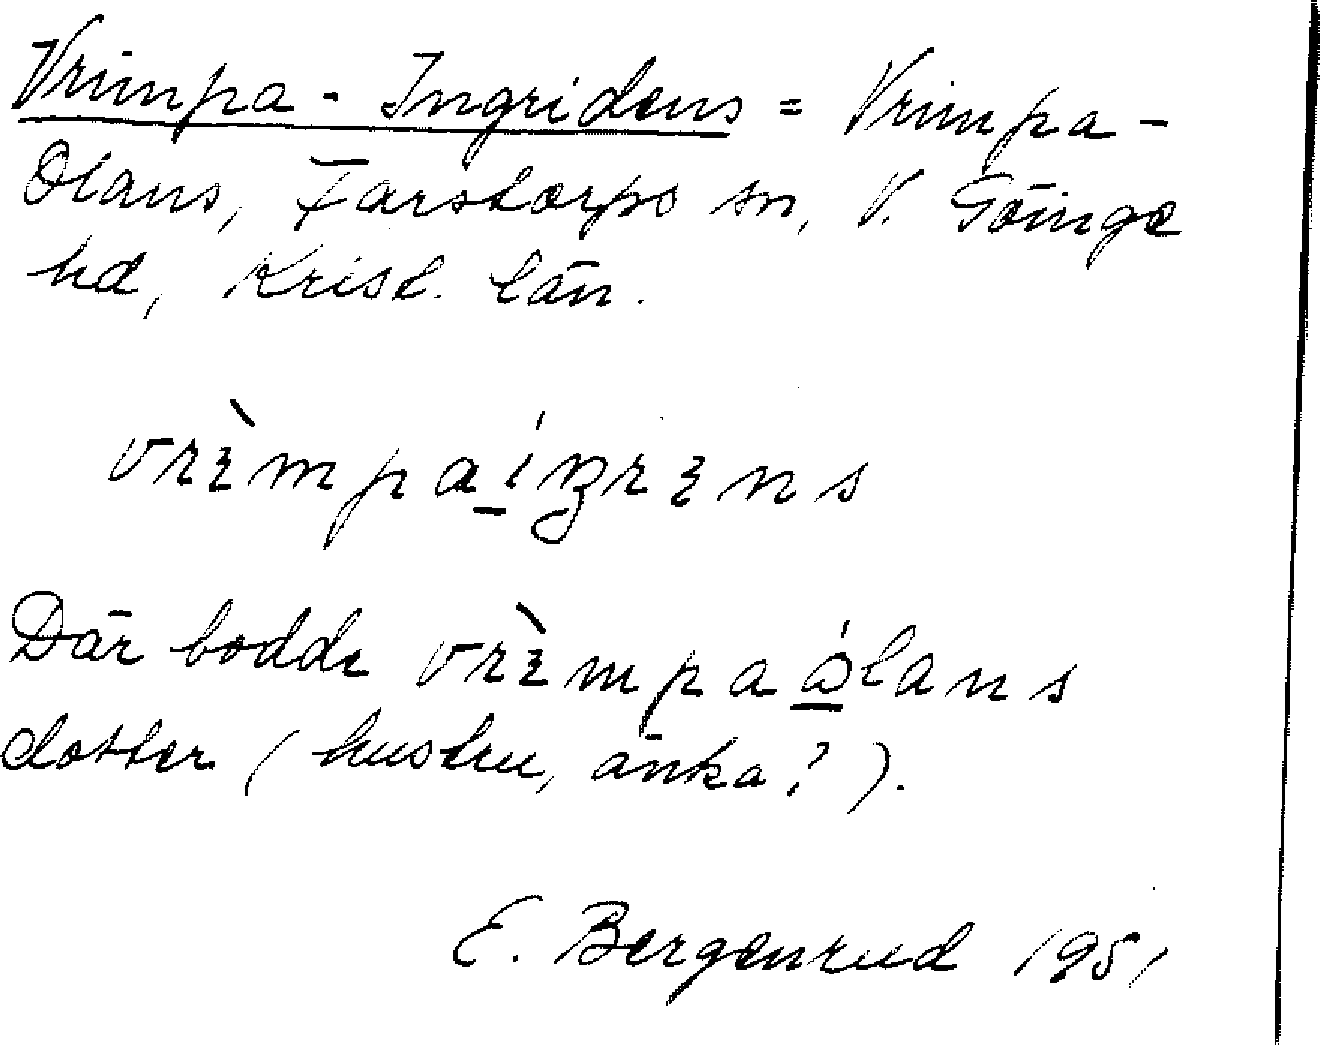 Vrimpa-Ingridens = Vrimpa-
Olans, Farstorps sn, V. Göinge
hd, Krist. län.
vrèmpaíŋrens
Där bodde vrèmpaálans
dotter (hustru, änka?).
E. Bergenrud 1951